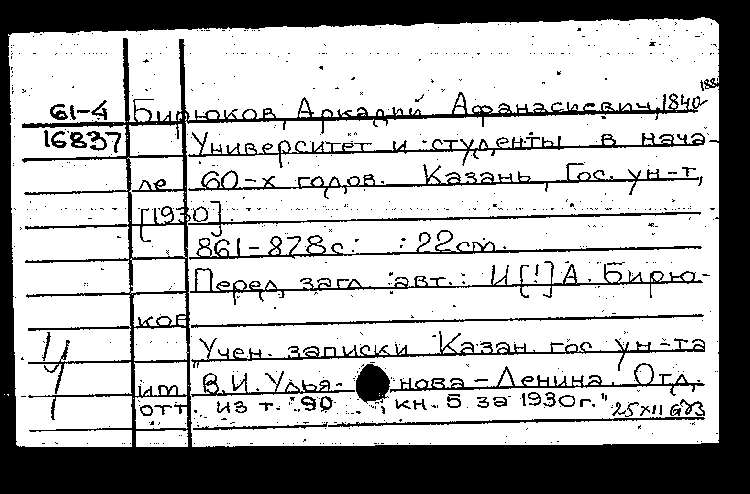 61-4 Бирюков, Аркадий Афанасиевич, 1840-
16837 Университет и студенты в нача-
ле 60-х годов. Казань, Гос. ун-т,
[1930].
861-878с. : 22cm.
Перед загл. авт.: И[!] А. Бирю-
ков
"Учен. записки Казан. гос. ун-та
им. В.И. Улья-нова-Ленина. Отд.
отт. из т. 90, кн. 5 за 1930г."